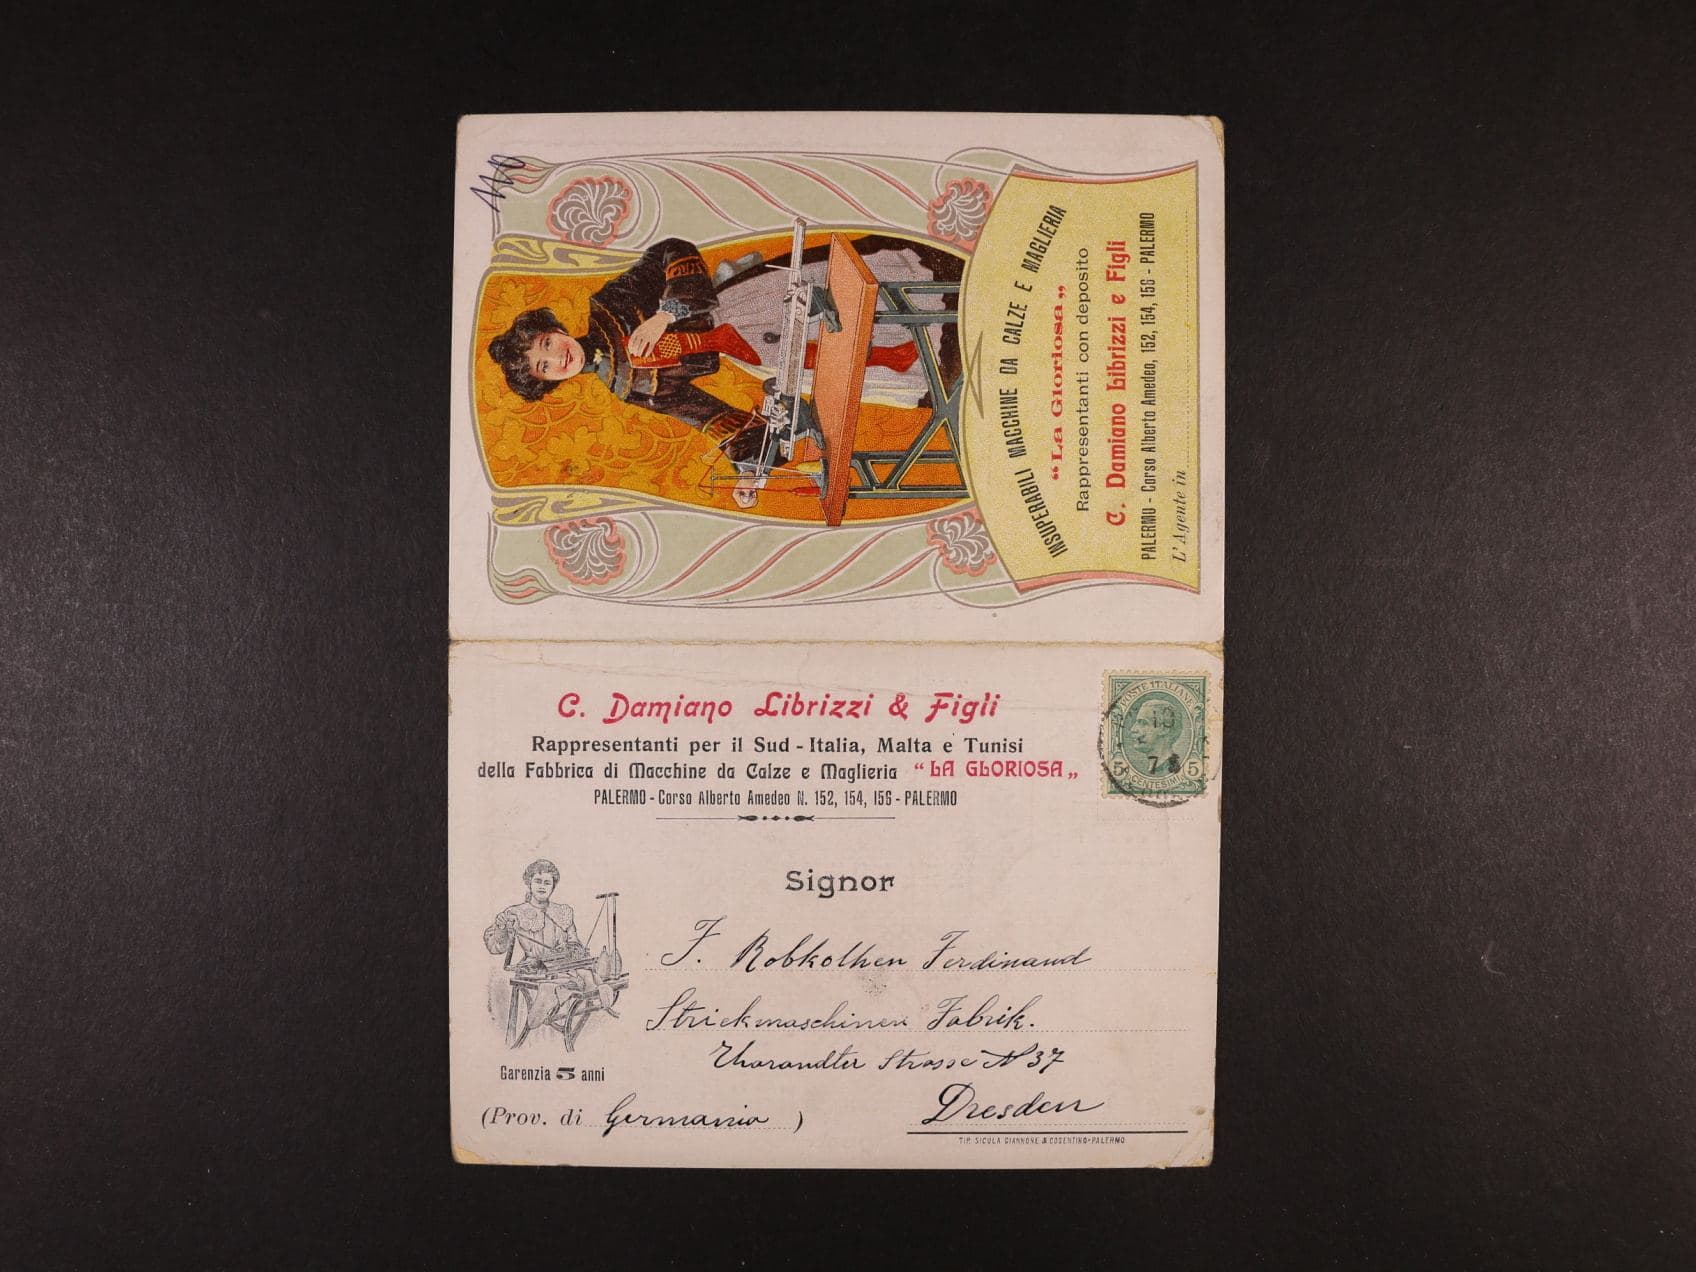 INSUPERABILI MACCHINE DA CALZE E MAGLIERIA
“La Gloriosa„
Rappresentanti con deposito
C. Damiano Librizzi e Figli
PALERMO - Corso Alberto Amedeo, 152, 154, 156 - PALERMO
L'Agente in
C. Damiano Librizzi & Figli
Rappresentanti per il Sud - Italia, Malta e Tunisi
della Fabbrica di Macchine da Calze e Maglieria “LA GLORIOSA„
PALERMO - Corso Alberto Amedeo N. 152, 154, 156 - PALERMO
POSTE ITALIANE
5 5
CENTESIMI
Signor
F. Robkothen Ferdinand
Strickmaschinen Fabrik.
Tharandter Strasse N 37
Dresden
Garenzia 5 anni
(Prov. di Germania)
TIP. SICULA GIANNONE & COSENTINO-PALERMO